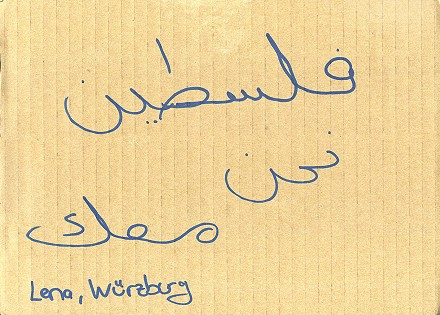 فلسطين
نحن
معك
Lena, Würzburg